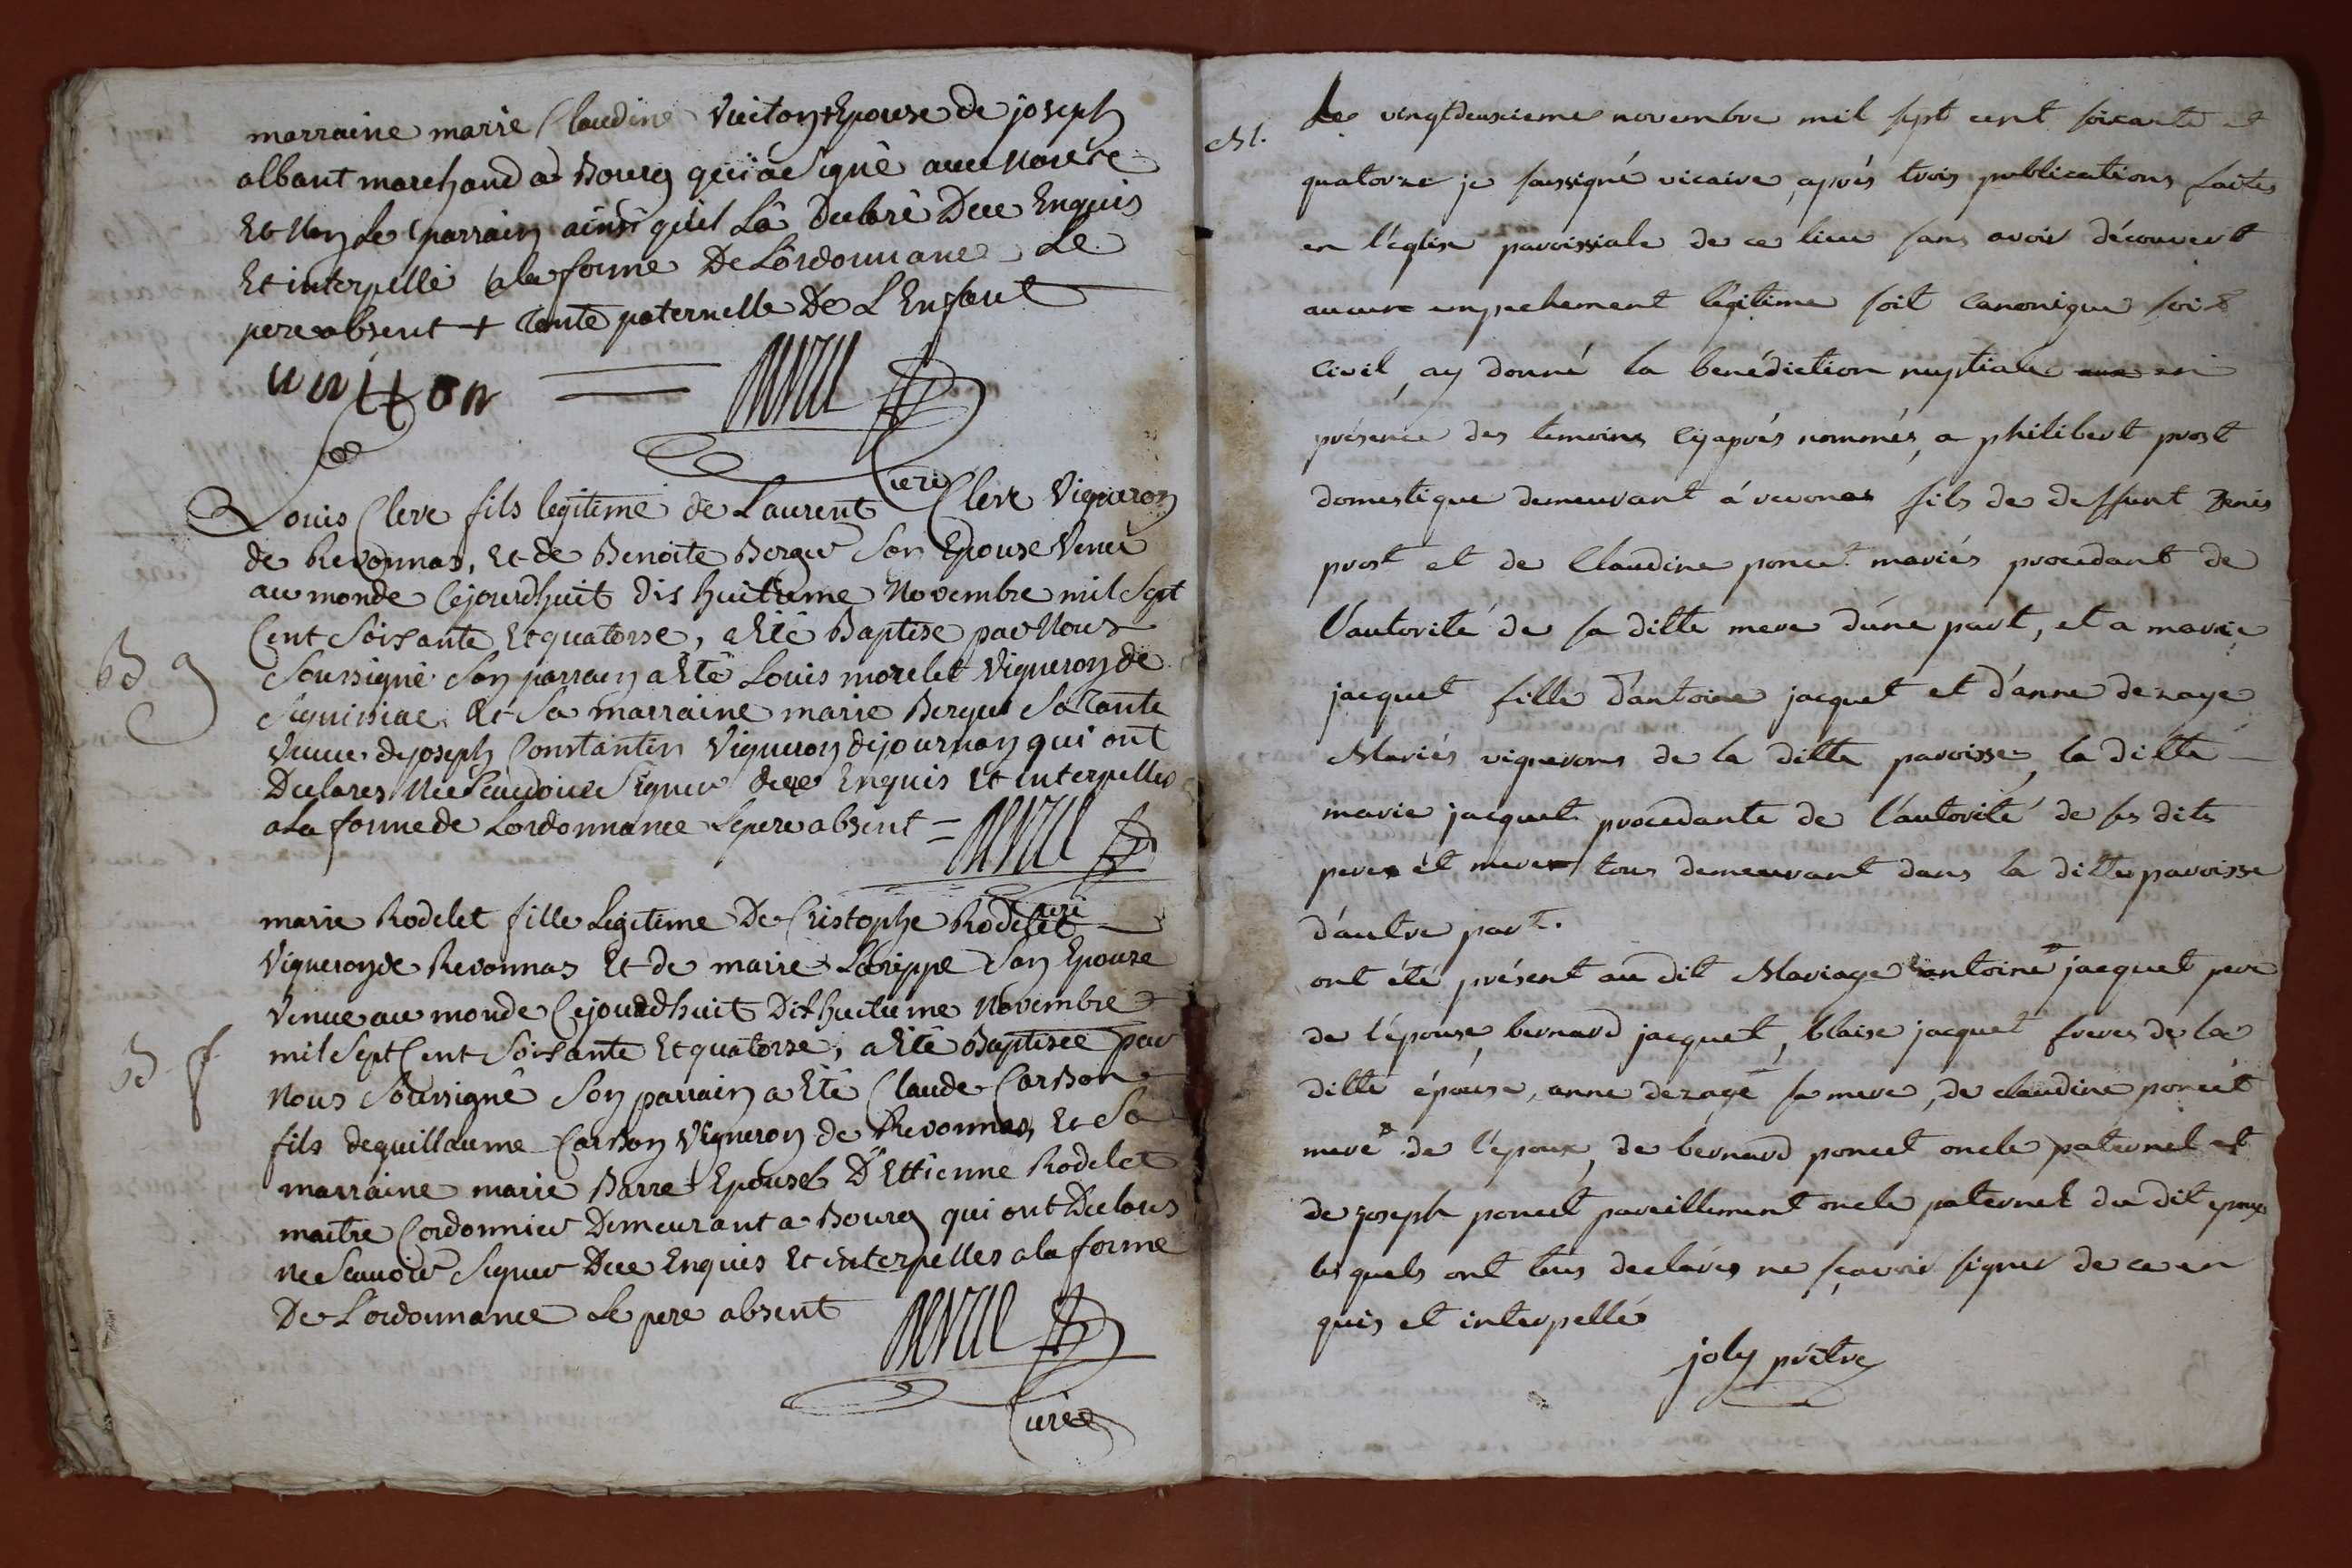 marraine marie Claudine Vuiton + Epouse de joseph
albant marchand a Bourg qui a signé avec nous
Et non le parrain ainsi quil la Declaré Dece Enquis
Et interpellé a la forme De Lordonnance Le
pere absent + tante paternelle De L Enfant
vuitton
Curé
Louis Clere fils legitime de Laurent Clere Vigneron
de Revonnas, et de Benoite Berger Son Epouse Venu
au monde Cejourdhuit dis huitieme Novembre mil Sept
Cent Soixante Et quatorse, a Eté Baptisé par Nous
Soussigné Son parrain a Eté Louis morelet Vigneron de
et Sa marraine marie Berger Sa tante
Veuve de joseph Constantin Vigneron de journan qui ont
Declares Ne Scavoir Signer dece Enquis Et interpelles
a La forme de Lordonnance Le pere absent =
B g
Curé
marie Rodelet fille Legitime De Cristophe Rodelet
Vigneron de Revonnas Et de marie Larippe Son Epouse
Venue au monde Cejourdhuit Dithuitieme Novembre
mil Sept Cent Soixante Et quatorse, a Eté Baptisée par
B f
Nous Soussigné Son parrain a Eté Claude Carson
fils de guillaume Carson Vigneron de Revonnas Et Sa
marraine marie Barre Epouse D'Ettienne Rodelet
maitre Cordonnier Demeurant a Bourg qui ont Declares
Ne Scavoir Signer Dece Enquis Et interpelles a la forme
De Lordonnance Le pere absent
Curé
M.
Le vingtdeuxieme novembre mil sept cent soixante et
quatorze je soussigné vicaire, aprés trois publications faites
en l'église paroissiale de ce lieu sans avoir découvert
aucune empechement légitime soit canonique soit
civil, ay donné la bénédiction nuptiale en
présence des temoins cyaprés nommés, a philibert prost
domestique demeurant á revonas fils de deffunt Denis
prost et de Claudine poncet mariés procedant de
l'autorité de sa ditte mere d'une part, et a marie
jacquet fille d'antoine jacquet et d'anne dezage
Mariés vignerons de la ditte paroisse, la ditte
marie jacquet procedante de l'autorité de ses dits
pere et mere tous demeurant dans la ditte paroisse
d'autre part.
ont été présent au dit Mariage antoine jacquet pere
de l'épouse, bernard jacquet, blaise jacquet freres de la
ditte épouse, anne dezage sa mere, de claudine poncet
mere de l'époux, de bernard poncet oncle paternel et
de joseph poncet pareillement oncle paternel du dit epoux
lesquels ont tous declarés ne sçavoir signer de ce en
quis et interpellés
joly prêtre